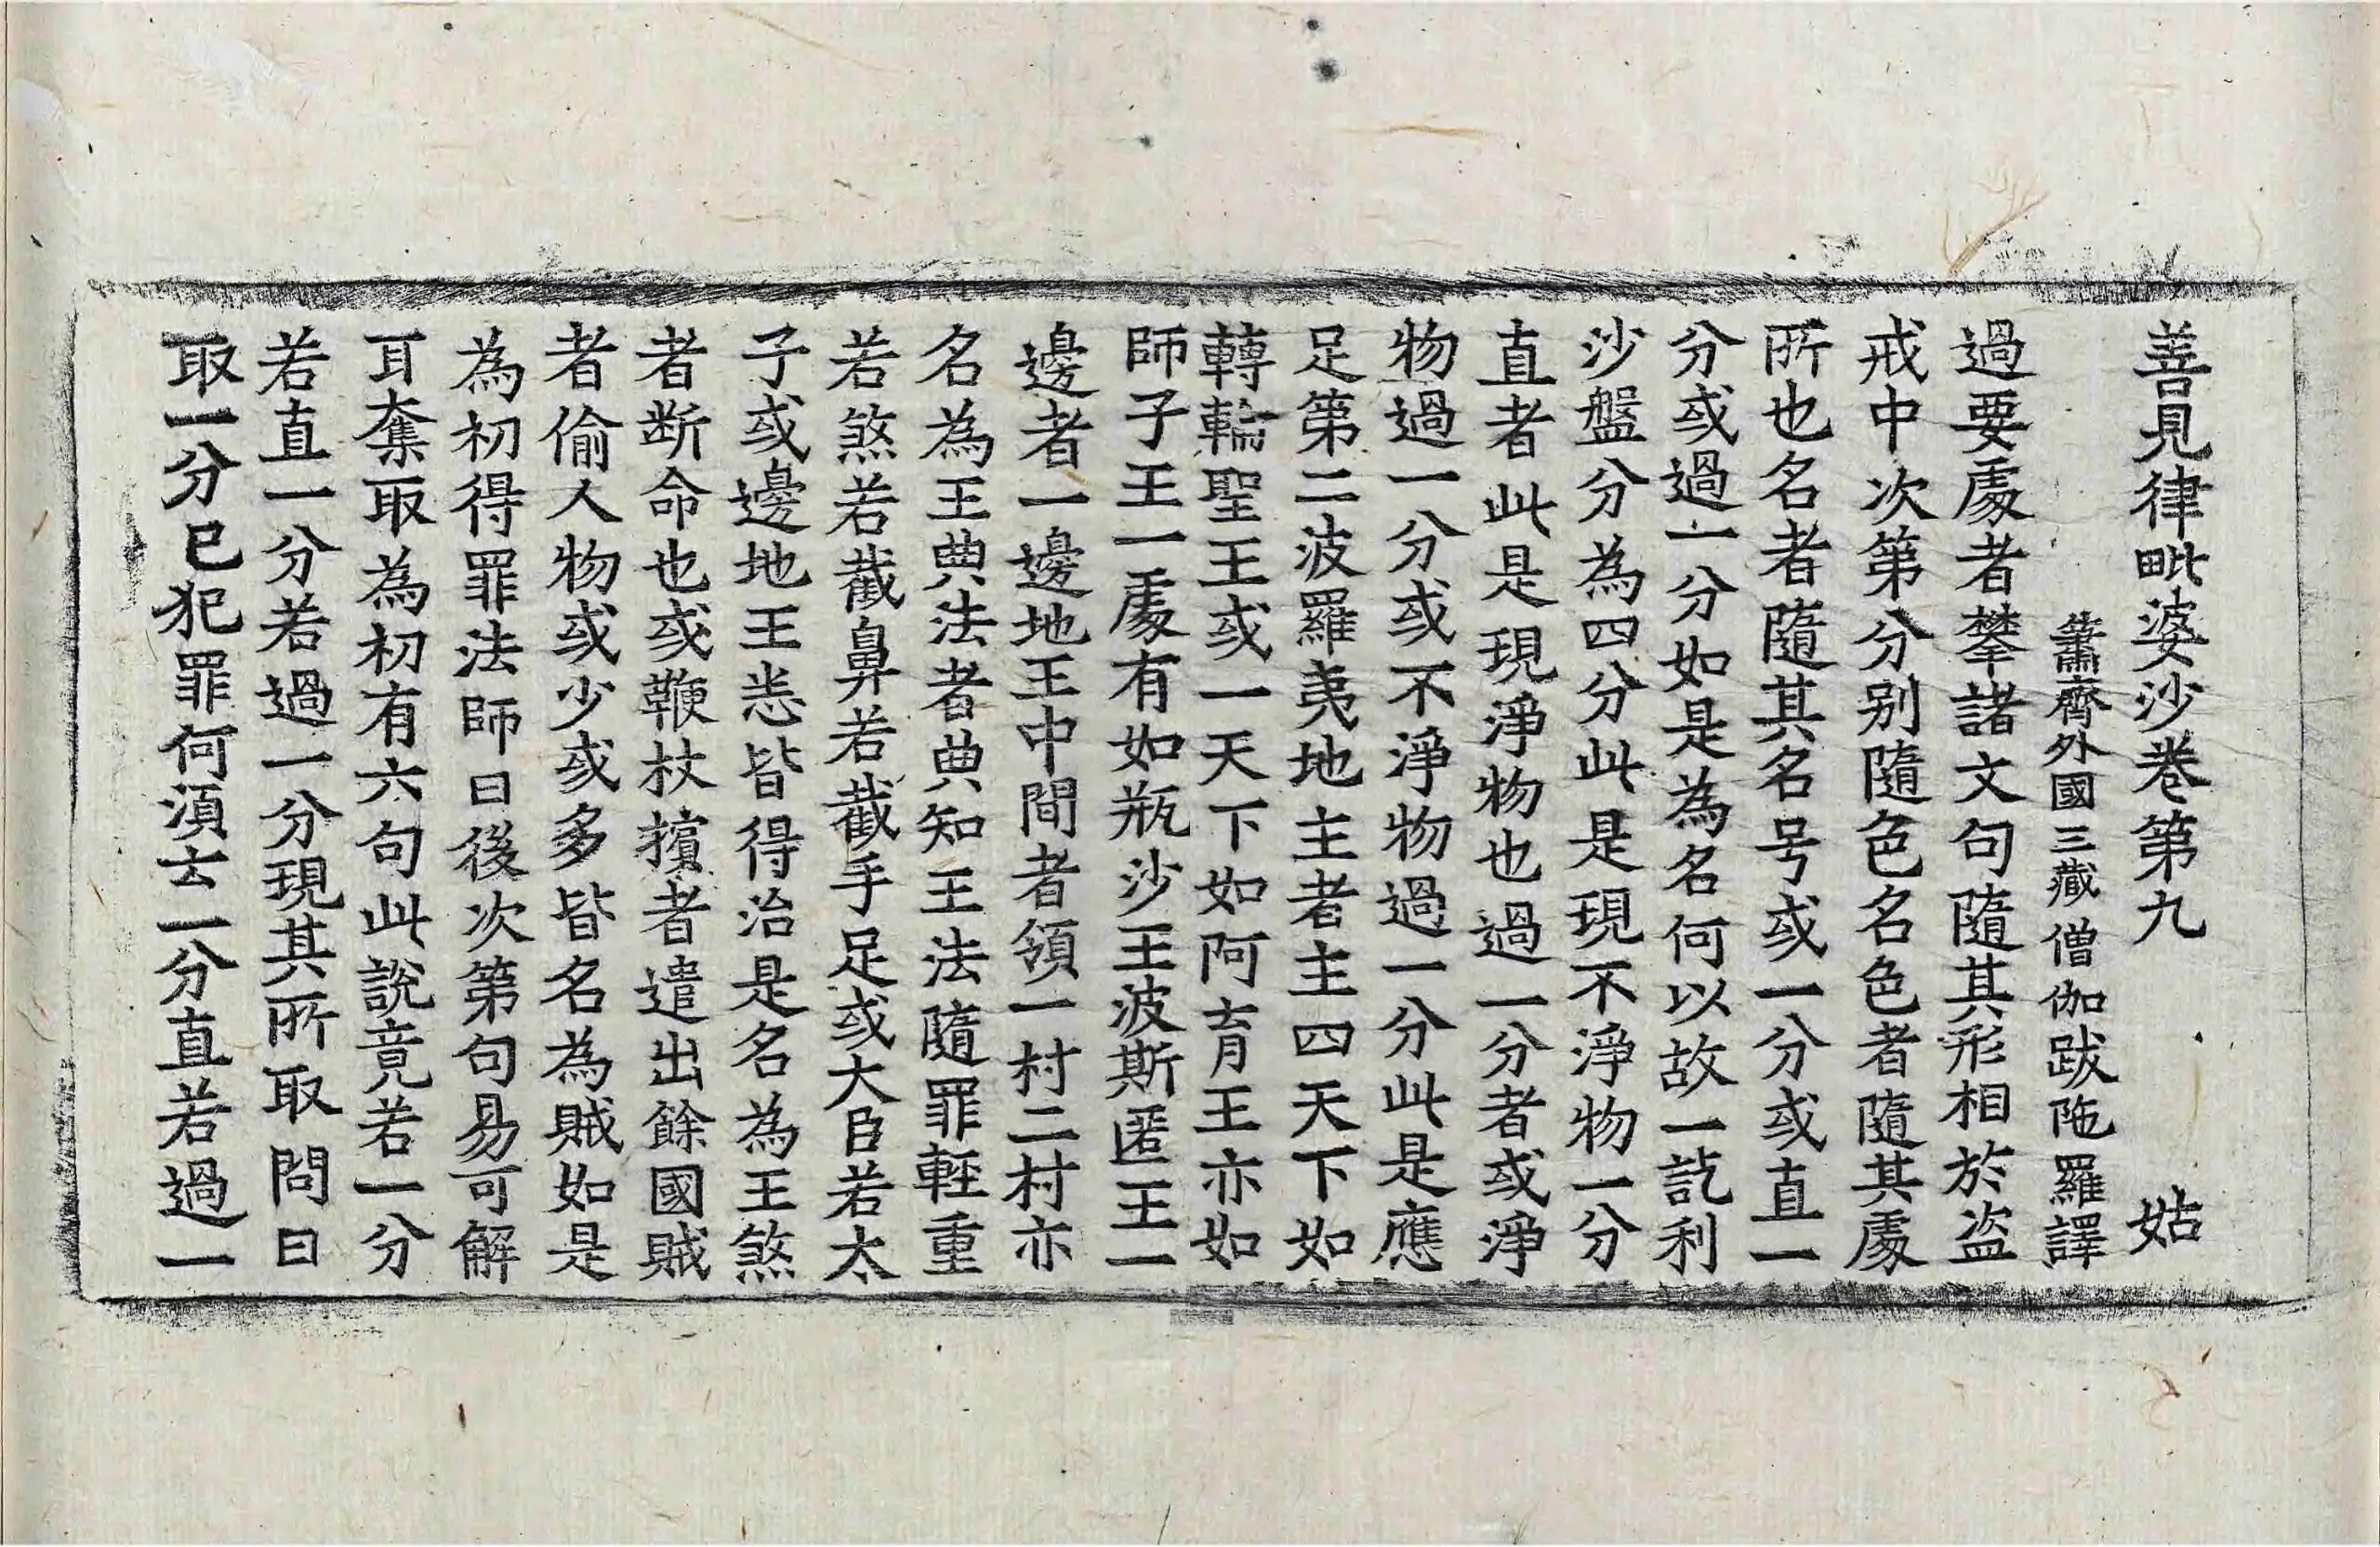 善見律毗婆沙卷第九　姑
蕭齊外國三藏僧伽跋陁羅譯
過要處者攀諸文句隨其形相於盜
戒中次第分別隨色名色者隨其處
所也名者隨其名号或一分或直一
分或過一分如是為名何以故一訖利
沙盤分為四分此是現不淨物一分
直者此是現淨物也過一分者或淨
物過一分或不淨物過一分此是應
足第二波羅夷地主者主四天下如
轉輪聖王或一天下如阿育王亦如
師子王一處有如瓶沙王波斯匿王一
邊者一邊地王中間者領一村二村亦
名為王典法者典知王法隨罪輕重
若煞若截鼻若截手足或大臣若太
子或邊地王恙皆得治是名為王煞
者断命也或鞭杖擯者遣出餘國賊
者偷人物或少或多皆名為賊如是
為初得罪法師曰後次第句易可解
耳奪取為初有六句此說竟若一分
若直一分若過一分現其所取問曰
取一分已犯罪何湏云一分直若過一